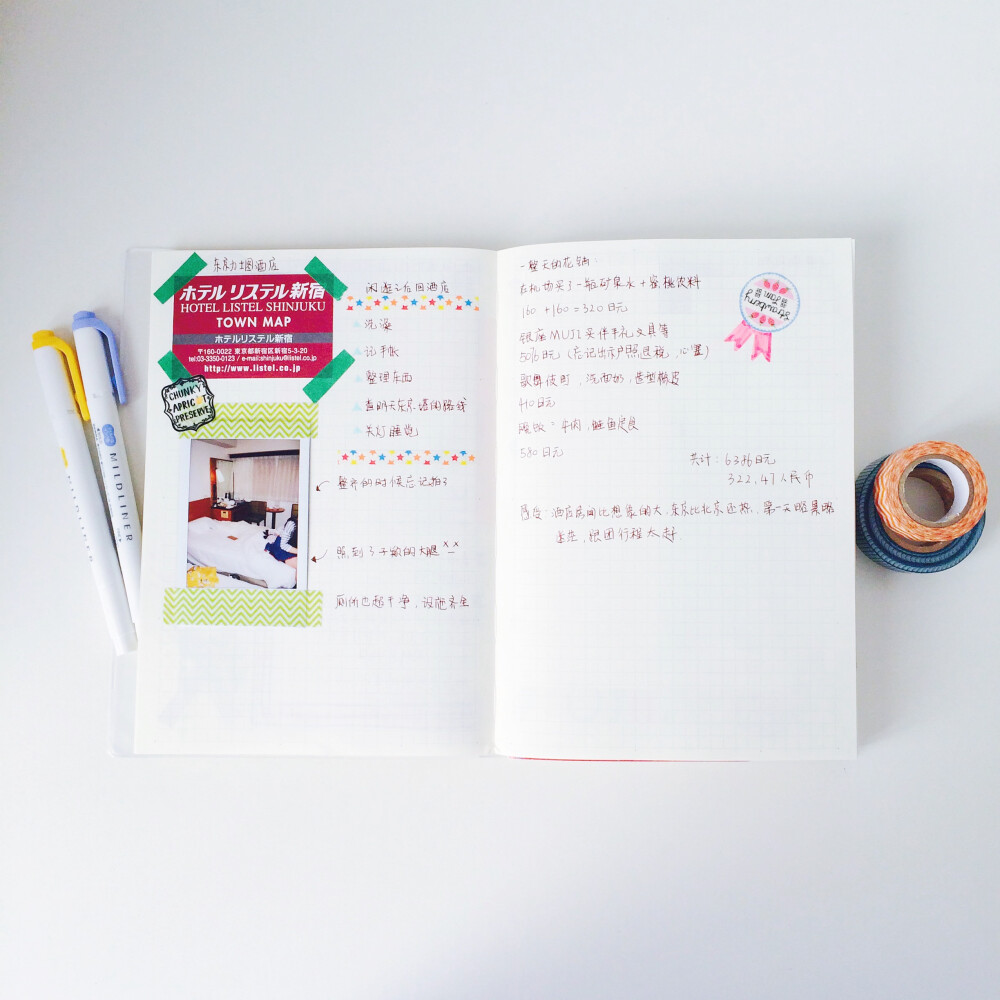 东京力士图酒店
ホテル リステル新宿
HOTEL LISTEL SHINJUKU
TOWN MAP
ホテルリステル新宿
〒160-0022 東京都新宿区新宿5-3-20
tel:03-3350-0123 / e-mail:shinjuku@listel.co.jp
http://www.listel.co.jp
CHUNKY
APRICOT
PRESERVE
闲逛之后回酒店
洗澡
记手帐
整理东西
查明天东京塔的路线
关灯睡觉
整齐的时候忘记拍了
照到了子歌的大腿 x_x
厕所也超干净,设施齐全
一整天的花销:
在机场买了一瓶矿泉水+蜜桃饮料
160+160=320日元
银座MUJI买伴手礼文具等
5076日元(忘记出示护照退税,心塞)
歌舞伎町,洗面奶,造型橡皮
410日元
晚饭:牛肉,鲑鱼定食
580日元
共计:6386日元
322.47人民币
总感:酒店房间比想象的大,东京比北京还热,第一天略暴躁
,跟团行程太赶.
Strawberry
MILDLINER
MILDLINER